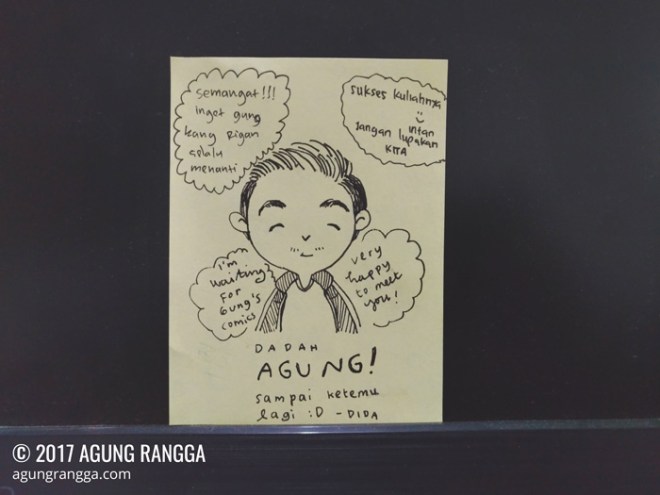 semangat!!!
Ingot gung
kang Rigan
selalu
menanti
sukses kuliahnya
:)
intan
Jangan lupakan
KITA
I'm
waiting
for
Gung's
comics
very
happy
to meet
you!
DADAH
AGUNG!
sampai ketemu
lagi :D -DIDA
© 2017 AGUNG RANGGA
agungrangga.com